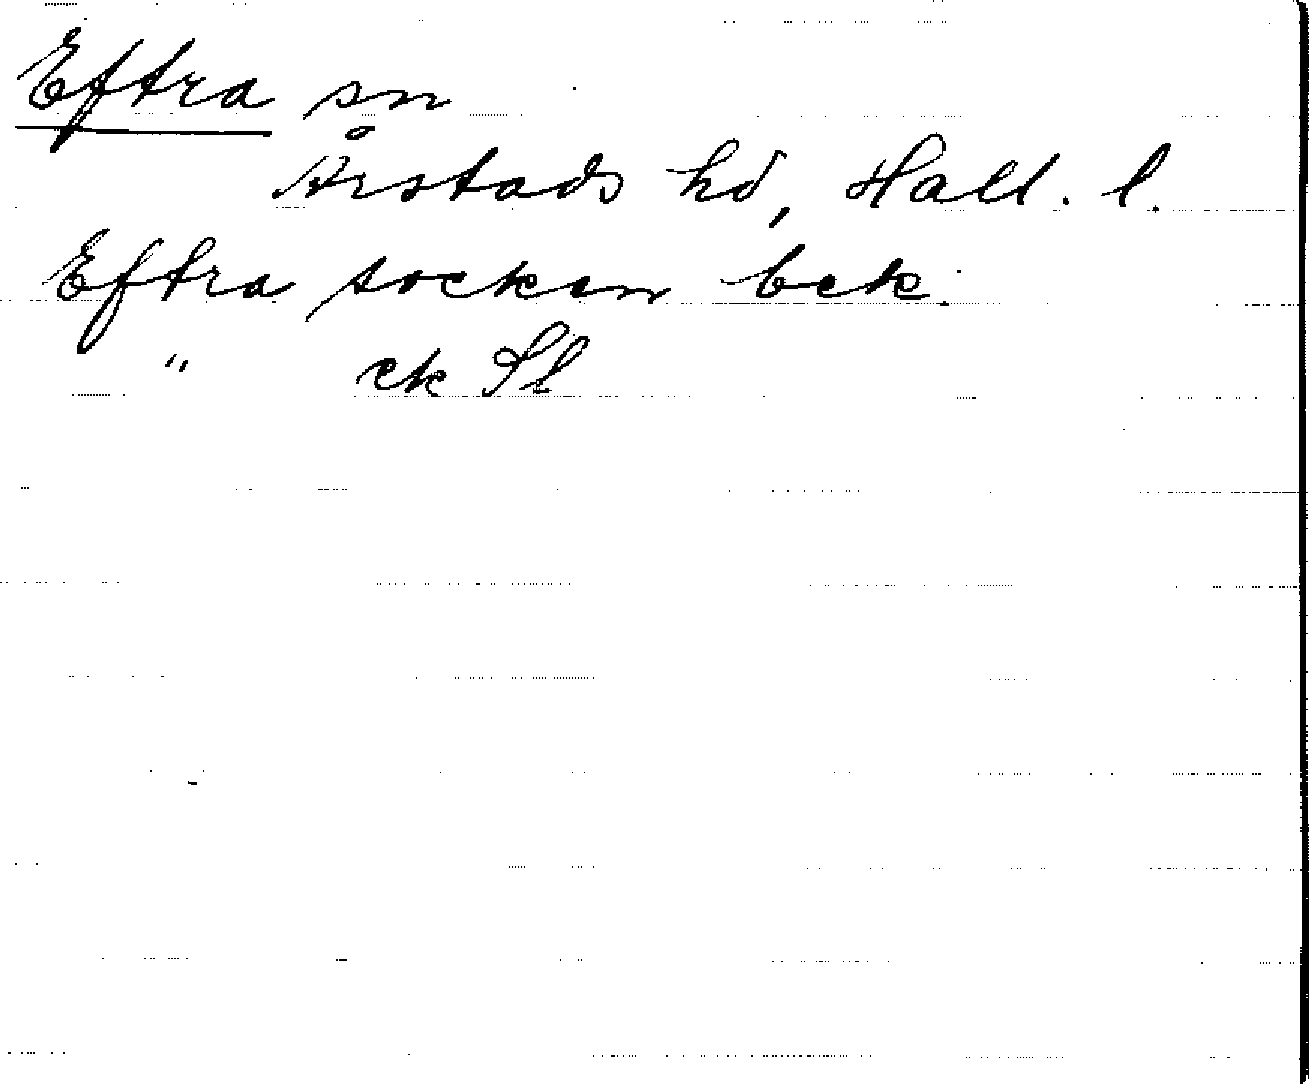 Eftra sn
Årstads hd, Hall. l.
Eftra socken bek.
" ek Sl